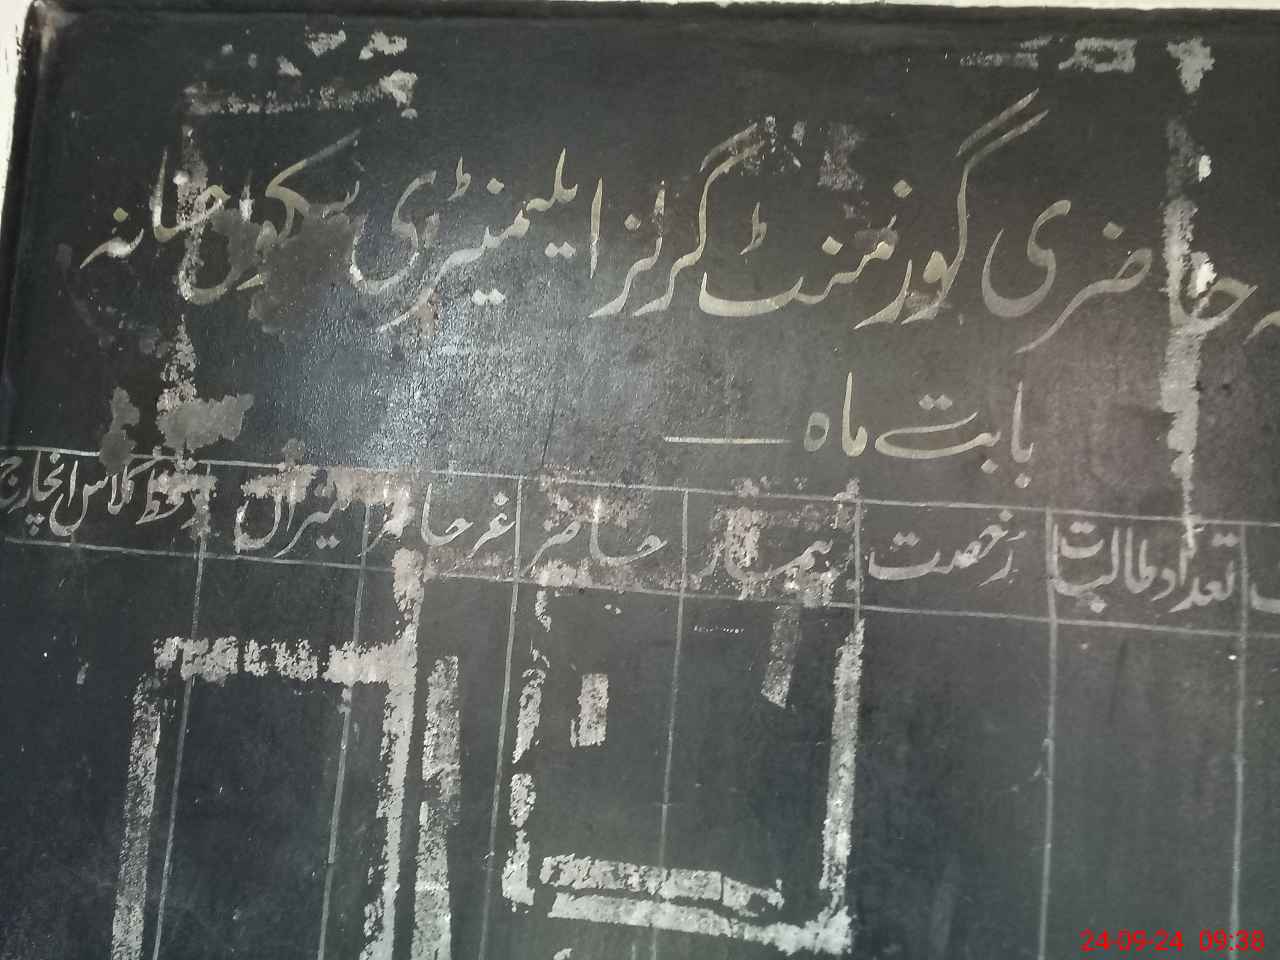 حاضری گورنمنٹ گرلز ایلیمنٹری سکول جسانہ
بابت ماہ ــــــ
تعداد طالبات رخصت بیمار حاضر غیر حاضر میزان دستخط کلاس انچارج
24-09-24 09:38